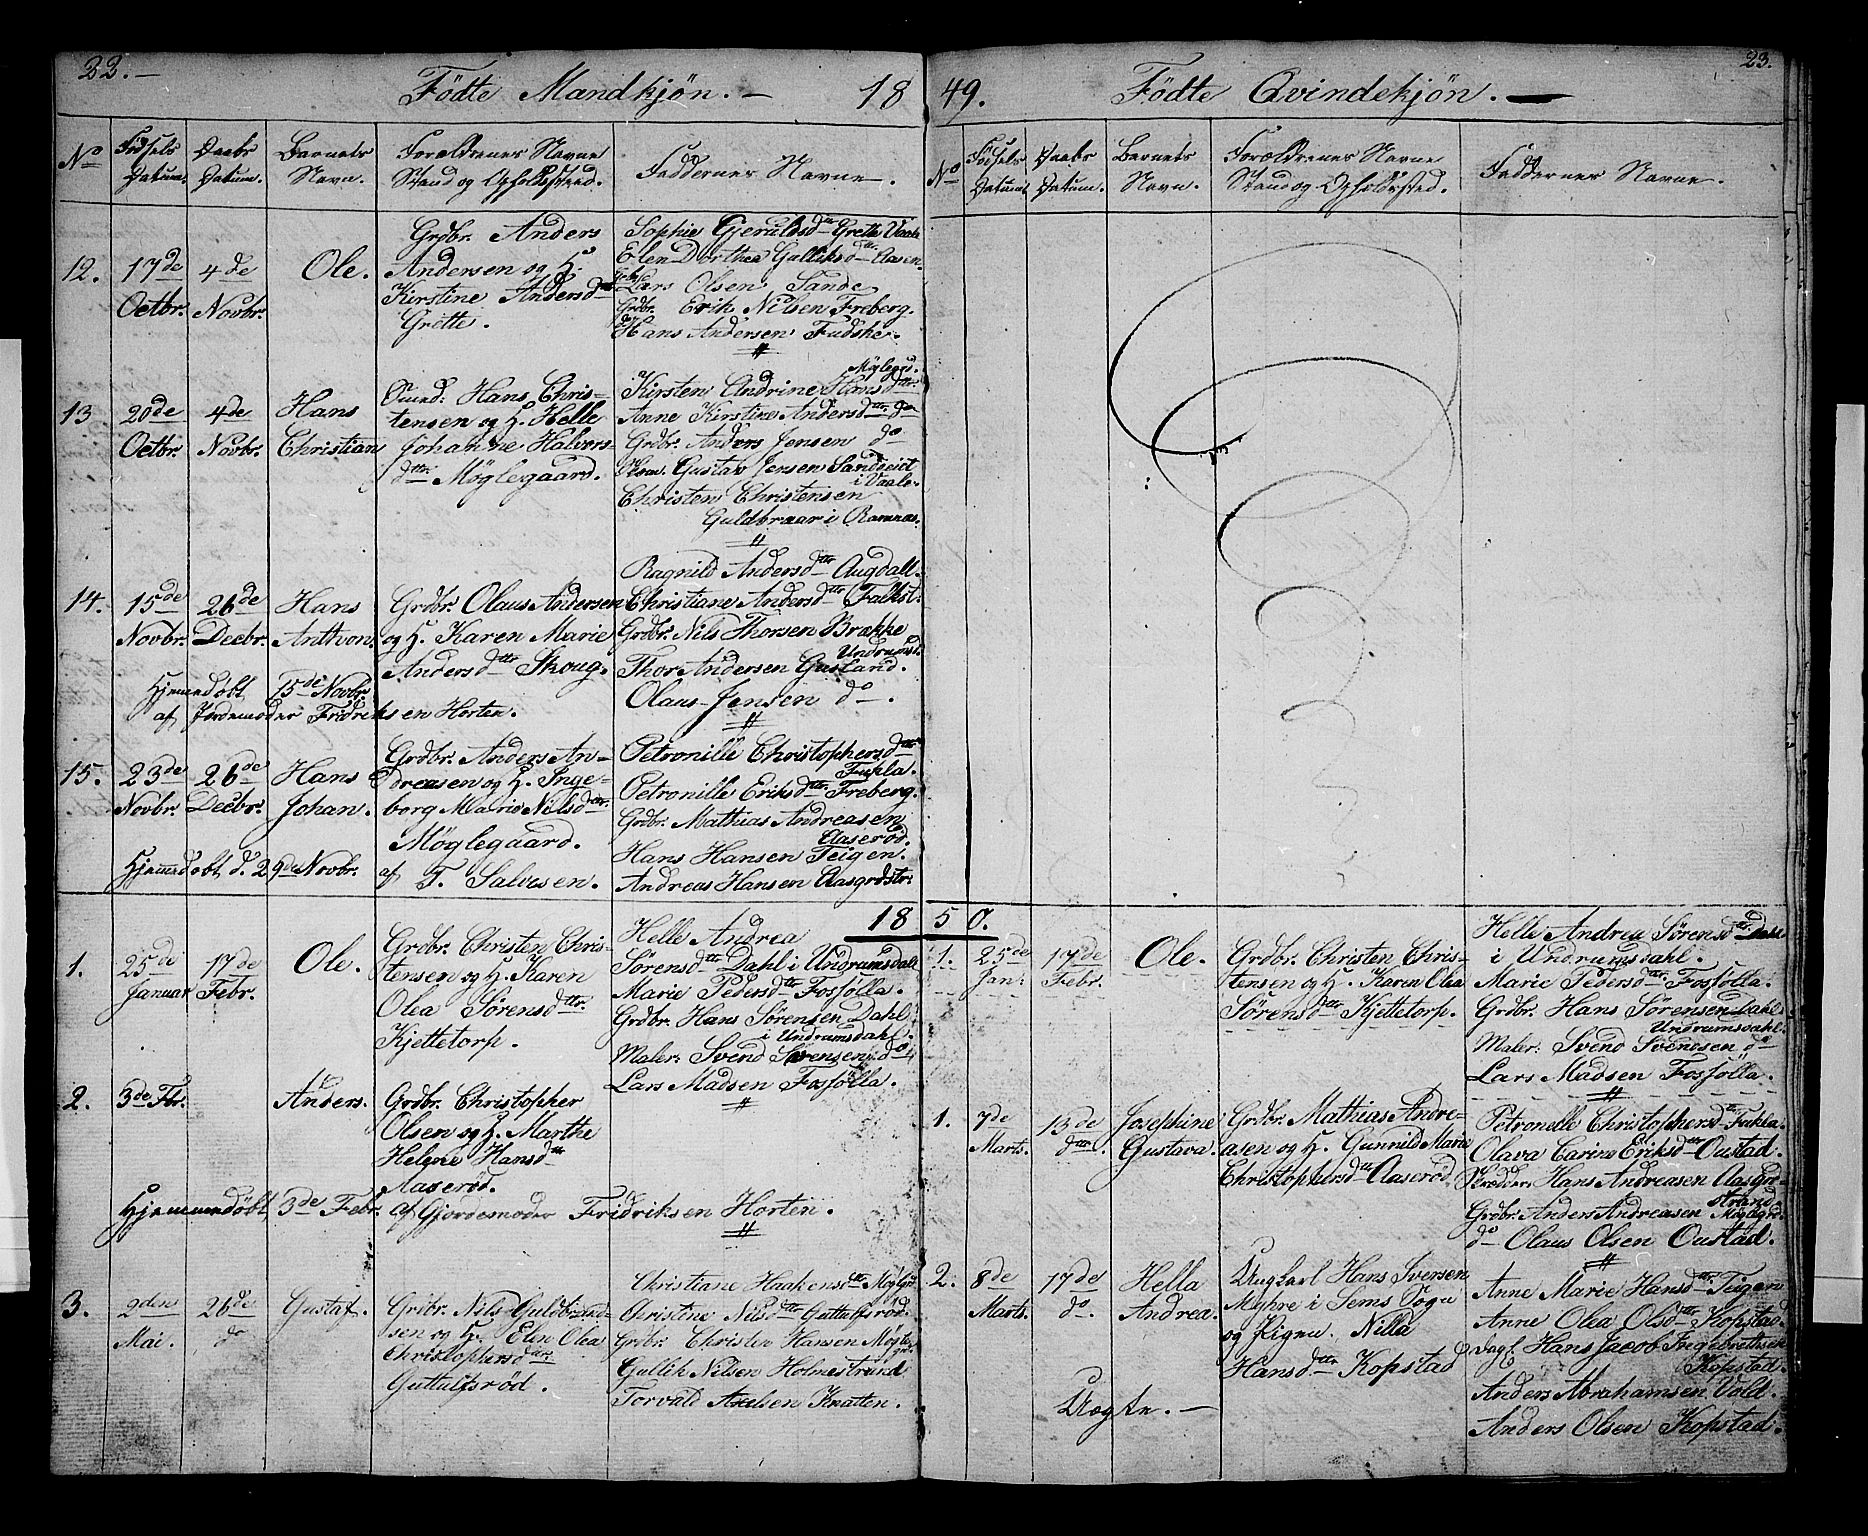 22. —
Födte Mandkjön. — 18
No
Födsels Datum.
Daabs Datum.
Barnets Navn.
Forældrenes Navne Stand og Opholdssted.
Faddernes Navne.
12.
17de Octbr.
4de Novbr.
Ole.
Grdbr. Anders
Andersen og H.
Kirstine Andersdtr
Grette.
Sophie Gjeruldsdtr Grette Vaale
Elen Dorthea Gulliksdtr Aasen.
Lars Olsen Sande
Grdbr. Erik Nilsen Freberg.
Hans Andersen Fudshe.
13
20de Octbr.
4de Novbr.
Hans Christian
Hans Chris-
tensen og H. Helle
Johanne Halvors-
dtr Möglegaard.
Möglegd.
Kirsten Andrine Hansdtr
Anne Kirstine Andersdtr do
Grdbr. Anders Jensen do
Gustav Jensen Sandeeiet
i Vaale.
Christen Christensen
Guldbraar i Ramnæs.
14.
15de Novbr.
26de Decbr.
Hans Anthon.
Grdbr. Olaus Andersen
og H. Karen Marie
Andersdtr Skoug.
Ragnild Andersdtr Augdall.
Christiane Andersdtr Falkst.
Grdbr. Nils Thorsen Brække
Undrumsd.
Thor Andersen Gusland.
Olaus Jensen do
Hjemmedøbt 15de Novbr.
af Jordemoder Fridriksen Horten.
15.
23de Novbr.
26de Decbr.
Hans Johan.
Grdbr. Anders An-
dreasen og H. Inge-
borg Marie Nilsdtr
Möglegaard.
Petronille Christophersdtr
Fukla.
Petronille Eriksdtr Freberg.
Grdbr. Mathias Andreasen
Aaserød.
Hans Hansen Teigen.
Andreas Hansen Aasgrdstr.
Hjemmedøbt d. 29de Novbr. af T. Salvesen.
18
1.
25de Januar
17de Febr.
Ole.
Grdbr. Christen Chris-
tensen og H. Karen
Olea Sørensdtr
Kjettetorp.
Helle Andrea
Sørensdtr Dahl i Undrumsdall
Marie Pedersdtr Fossølla.
Grdbr. Hans Sørensen Dahl
i Undrumsdahl.
Maler: Svend Sørensen do
Lars Madsen Fosfølla.
2.
3de Fbr.
Anders.
Grdbr. Christopher
Olsen og H. Marthe
Helene Hansdtr
Aaserød.
Hjemmedøbt 3de Febr. af Gjordemoder Fridriksen Horten.
3.
9den Mai.
26de do
Gustaf.
Grdbr. Nils Guldbrand-
sen og H. Elen Olea
Christophersdtr
Guttulfsrød.
Christiane Haakensdtr Möglgrd
Christine Nilsdtr Guttulfsrød.
Grdbr. Christen Hansen Möglegrd
Gullik Nilsen Holmestrand
Torvald Axelsen Knatten.
49. Födte Qvindekjön. —
23.
No
Födsels Datum.
Daabs Datum.
Barnets Navn.
Forældrenes Navne Stand og Opholdssted.
Faddernes Navne.
50.
1.
25de Jan.
17de Febr.
Ole.
Grdbr. Christen Chris-
tensen og H. Karen Olea
Sørensdtr Kjettetorp.
Helle Andrea Sørensdtr Dahl
i Undrumsdahl.
Marie Pedersdtr Fosfølla.
Grdbr. Hans Sørensen Dahl
Undrumsdahl.
Maler: Svend Svendsen do
Lars Madsen Fosfølla.
1.
7de Marts.
13de
Josephine Gustava.
Grdbr. Mathias Andre-
asen og H. Gunnild Marie
Christophersdtr Aaserød.
Petronelle Christophersdtr Fukla.
Olava Carine Eriksdtr Oustad.
Hans Andreasen Aasgrd-
strand.
Grdbr. Anders Andreasen Möglegrd.
do Olaus Olsen Oustad.
2.
8de Marts.
17de do.
Hella Andrea.
Ungkarl Hans Iversen
Myhre i Sems Sogn
og Pigen. Nilla
Hansdtr Kopstad
Anne Marie Hansdtr Teigen
Anne Olea Olsdtr Kopstad
Dagl. Hans Jacob Ingebrethsen
Kopstad.
Anders Abrahamsen Vold.
Anders Olsen Kopstad.
Uægte. —